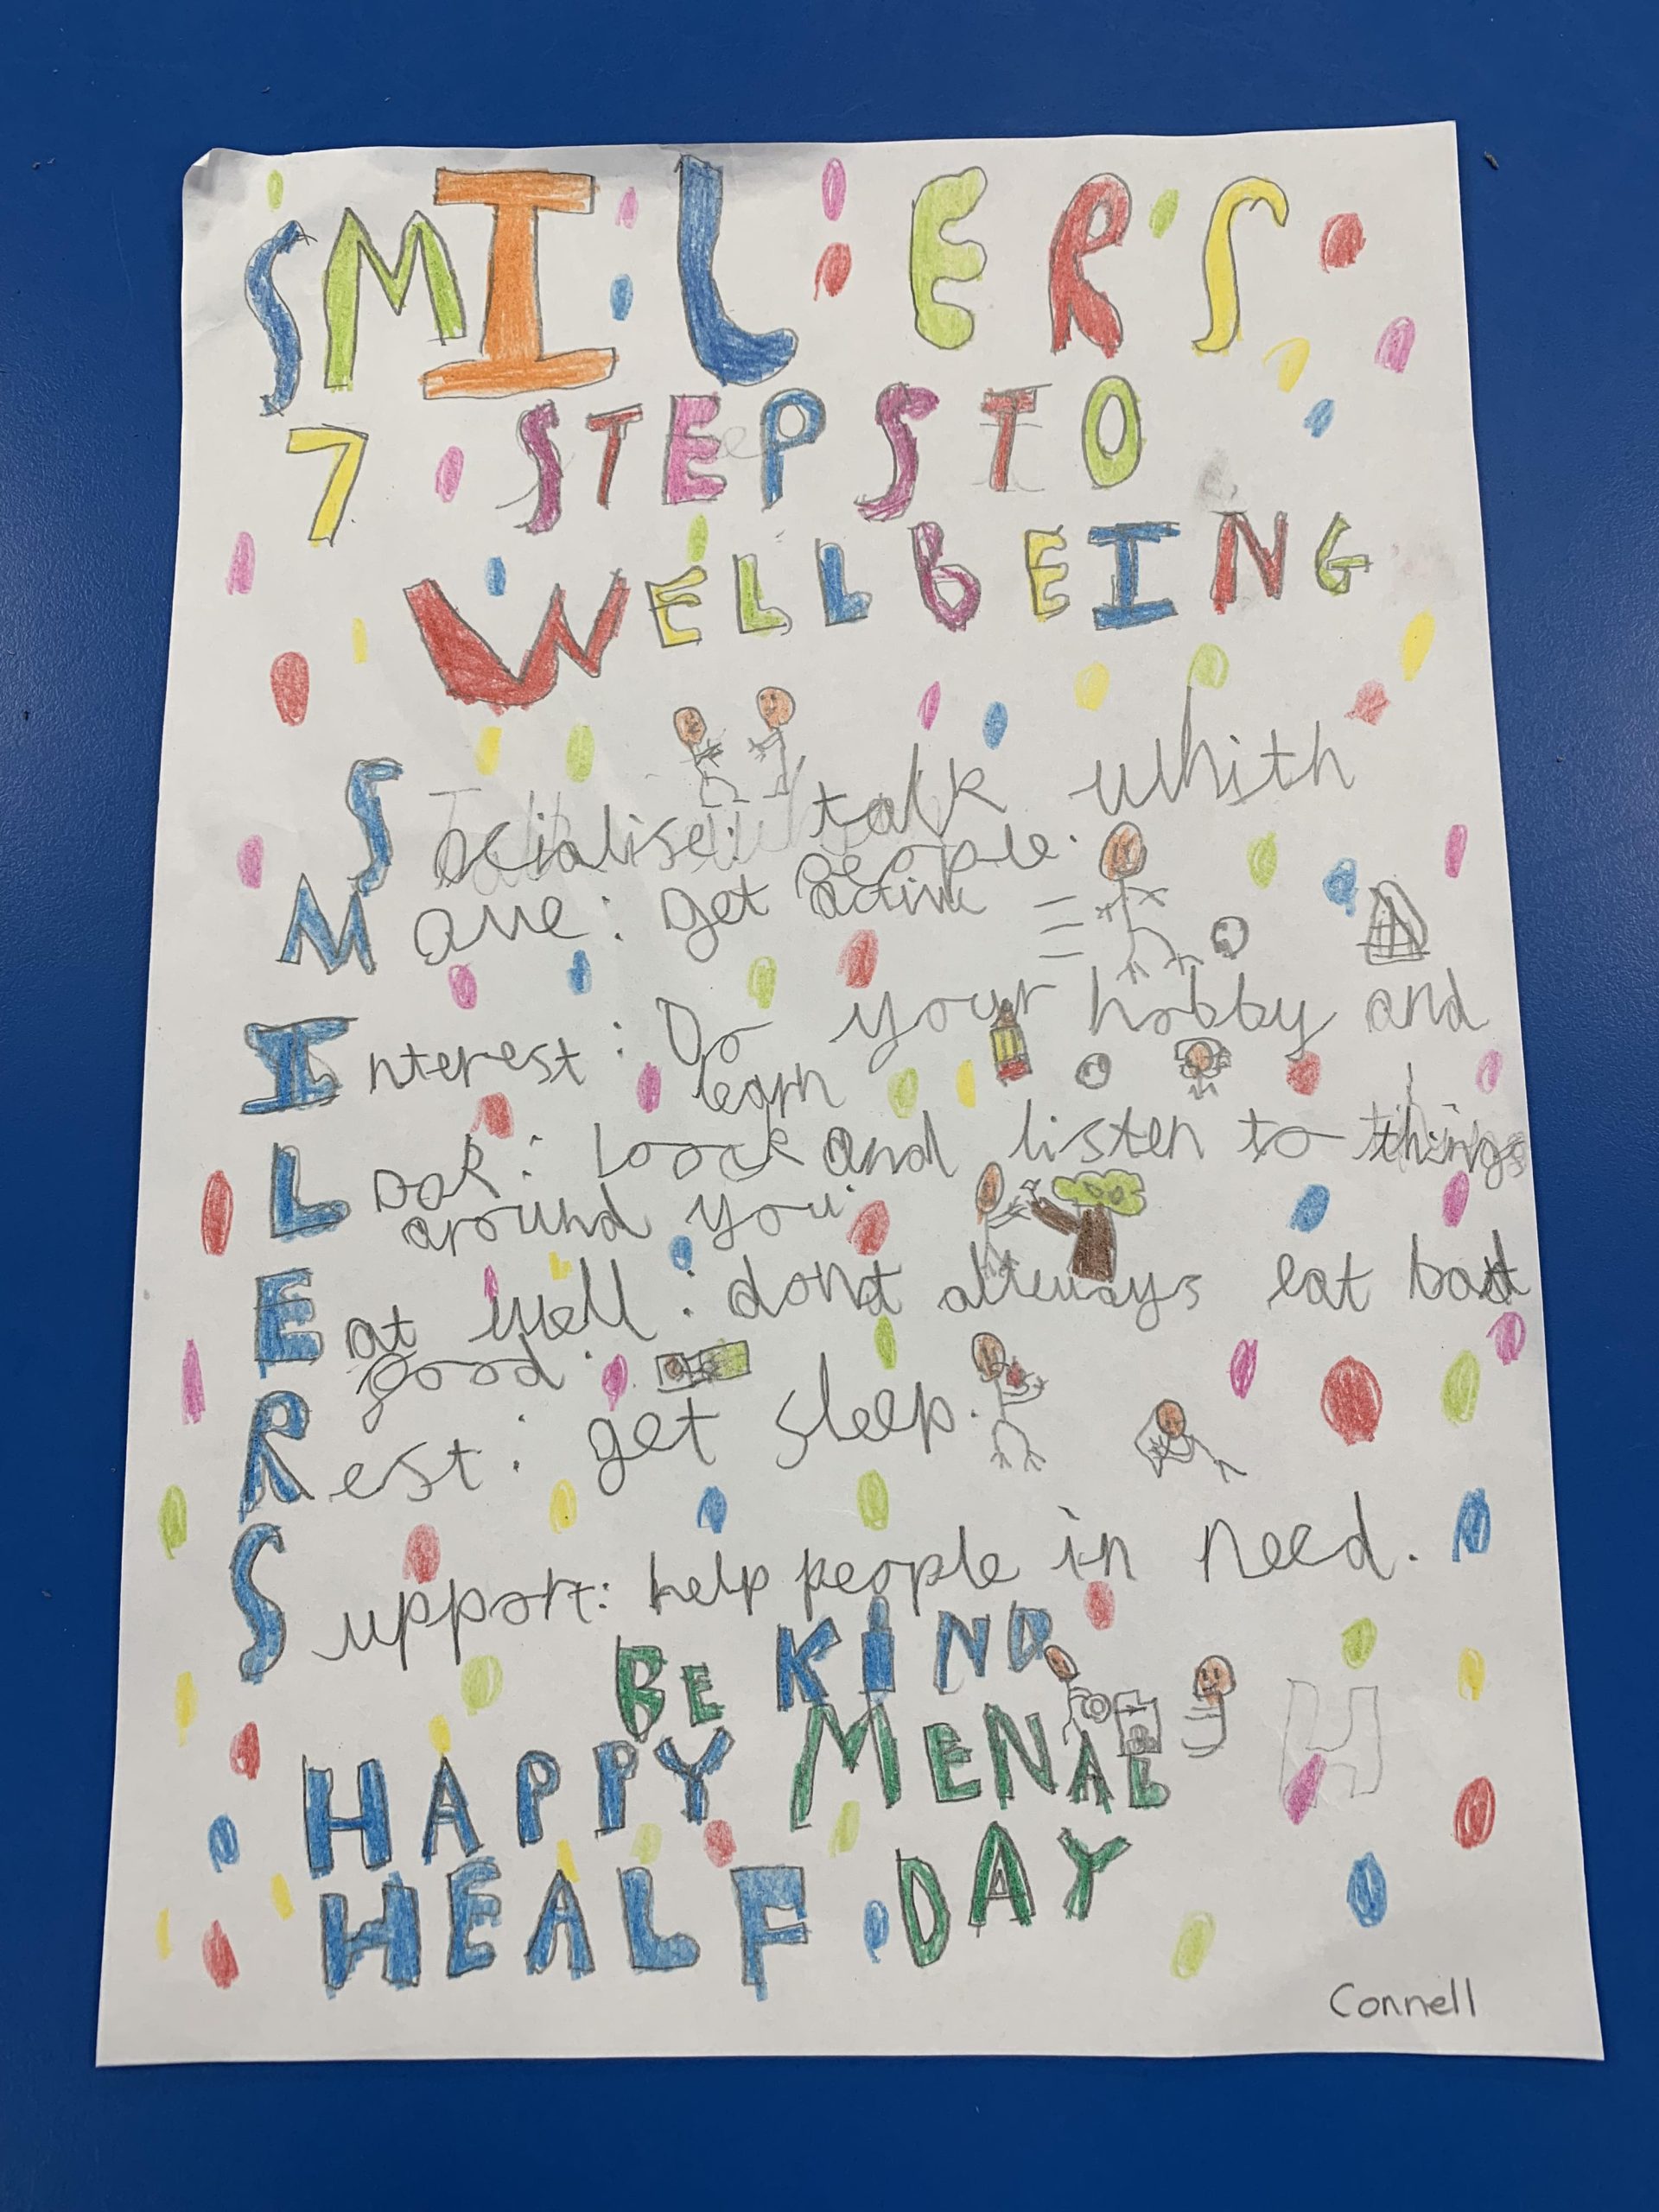 SMILERS
7 STEPS TO
WELLBEING
Socialise: talk whith
people.
Move: get active
Interest: Do your hobby and
learn
Look: loock and listen to things
around you.
Eat well: dont allways eat bad
good.
Rest: get sleep.
Support: help people in need.
BE KIND
HAPPY MENAL H
HEALF DAY
Connell